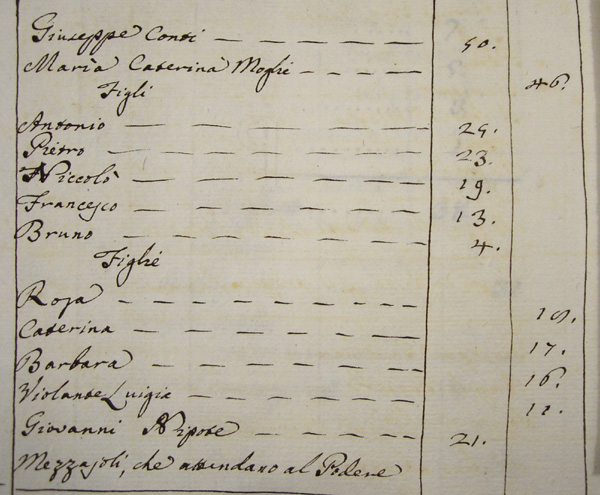 Giuseppe Conti — — — — — — 50.
Maria Caterina Moglie - - - - 46.
Figli
Antonio — — — — — — —
Pietro — — — — — — 23.
Niccolò — — — — — — 19.
Francesco — — — — — — 13.
Bruno — — — — — — — 4.
Figlie
Rosa - - - - - - - - -
Caterina — — — — — — 17.
Barbara — — — — — — 16.
Violante Luigia — — — — —
Giovanni Nipote — — - - - 21.
Mezzajoli, che attendano al Podere